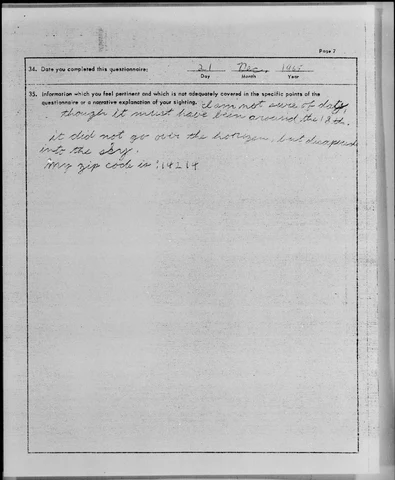 Page 7
34. Date you completed this questionnaire: 21 Dec. 1965
Day Month Year
35. Information which you feel pertinent and which is not adequately covered in the specific points of the
questionnaire or a narrative explanation of your sighting. I am not sure of date
though it must have been around the 18th.
it did not go over the horizon, but disappeared
into the sky.
My zip code is: 14214